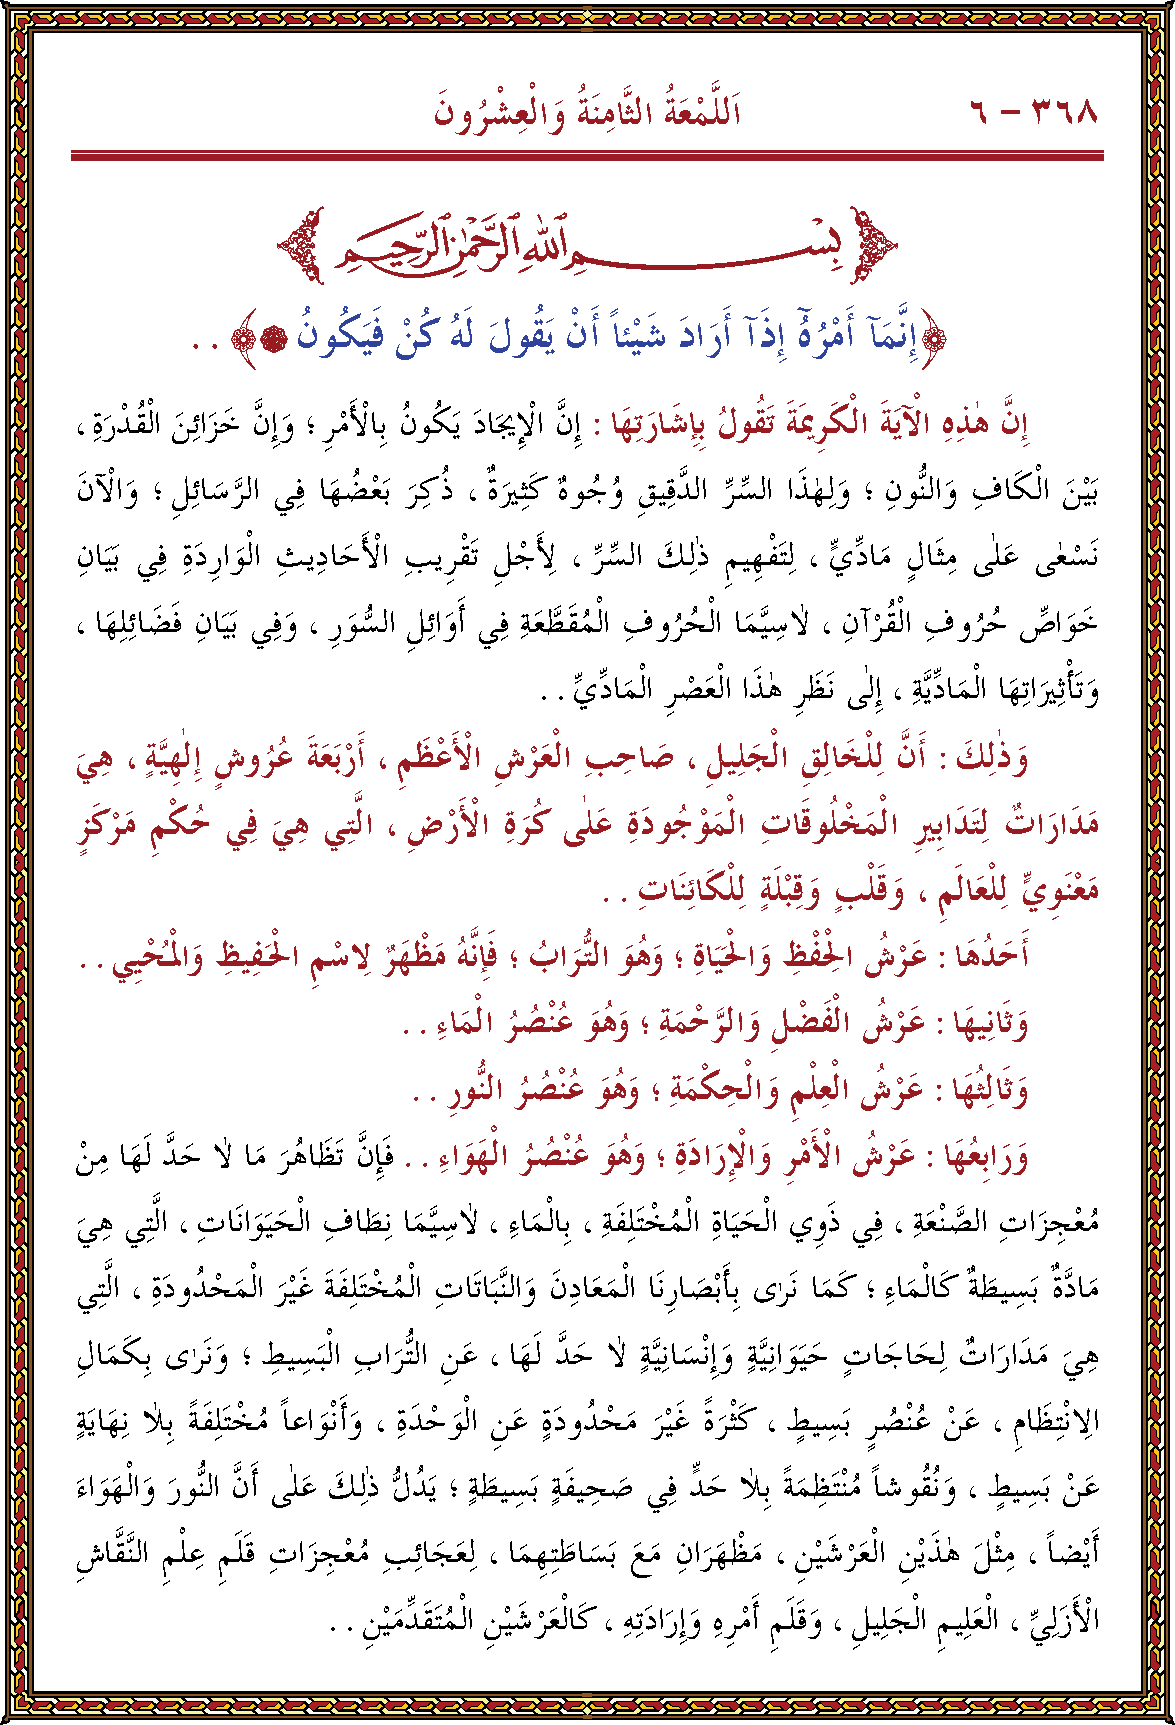 ٣٦٨ – ٦ اَللَّمْعَةُ الثَّامِنَةُ وَالْعِشْرُونَ
بِسْمِ اللهِ الرَّحْمٰنِ الرَّحِيمِ
﴿إِنَّمَآ أَمْرُهُٓ إِذَآ أَرَادَ شَيْئاً أَنْ يَقُولَ لَهُ كُنْ فَيَكُونُ﴾ . .
إِنَّ هٰذِهِ الْآيَةَ الْكَرِيمَةَ تَقُولُ بِإِشَارَتِهَا : إِنَّ الْإِيجَادَ يَكُونُ بِالْأَمْرِ ؛ وَإِنَّ خَزَائِنَ الْقُدْرَةِ ،
بَيْنَ الْكَافِ وَالنُّونِ ؛ وَلِهٰذَا السِّرِّ الدَّقِيقِ وُجُوهٌ كَثِيرَةٌ ، ذُكِرَ بَعْضُهَا فِي الرَّسَائِلِ ؛ وَالْآنَ
نَسْعٰى عَلٰى مِثَالٍ مَادِّيٍّ ، لِتَفْهِيمِ ذٰلِكَ السِّرِّ ، لِأَجْلِ تَقْرِيبِ الْأَحَادِيثِ الْوَارِدَةِ فِي بَيَانِ
خَوَاصِّ حُرُوفِ الْقُرْآنِ ، لاٰسِيَّمَا الْحُرُوفِ الْمُقَطَّعَةِ فِي أَوَائِلِ السُّوَرِ ، وَفِي بَيَانِ فَضَائِلِهَا ،
وَتَأْثِيرَاتِهَا الْمَادِّيَّةِ ، إِلٰى نَظَرِ هٰذَا الْعَصْرِ الْمَادِّيِّ . .
وَذٰلِكَ : أَنَّ لِلْخَالِقِ الْجَلِيلِ ، صَاحِبِ الْعَرْشِ الْأَعْظَمِ ، أَرْبَعَةَ عُرُوشٍ إِلٰهِيَّةٍ ، هِيَ
مَدَارَاتٌ لِتَدَابِيرِ الْمَخْلُوقَاتِ الْمَوْجُودَةِ عَلٰى كُرَةِ الْأَرْضِ ، الَّتِي هِيَ فِي حُكْمِ مَرْكَزٍ
مَعْنَوِيٍّ لِلْعَالَمِ ، وَقَلْبٍ وَقِبْلَةٍ لِلْكَائِنَاتِ . .
أَحَدُهَا : عَرْشُ الْحِفْظِ وَالْحَيَاةِ ؛ وَهُوَ التُّرَابُ ؛ فَإِنَّهُ مَظْهَرٌ لِاسْمِ الْحَفِيظِ وَالْمُحْيِي . .
وَثَانِيهَا : عَرْشُ الْفَضْلِ وَالرَّحْمَةِ ؛ وَهُوَ عُنْصُرُ الْمَاءِ . .
وَثَالِثُهَا : عَرْشُ الْعِلْمِ وَالْحِكْمَةِ ؛ وَهُوَ عُنْصُرُ النُّورِ . .
وَرَابِعُهَا : عَرْشُ الْأَمْرِ وَالْإِرَادَةِ ؛ وَهُوَ عُنْصُرُ الْهَوَاءِ . . فَإِنَّ تَظَاهُرَ مَا لاٰ حَدَّ لَهَا مِنْ
مُعْجِزَاتِ الصَّنْعَةِ ، فِي ذَوِي الْحَيَاةِ الْمُخْتَلِفَةِ ، بِالْمَاءِ ، لاٰسِيَّمَا نِطَافِ الْحَيَوَانَاتِ ، الَّتِي هِيَ
مَادَّةٌ بَسِيطَةٌ كَالْمَاءِ ؛ كَمَا نَرٰى بِأَبْصَارِنَا الْمَعَادِنَ وَالنَّبَاتَاتِ الْمُخْتَلِفَةَ غَيْرَ الْمَحْدُودَةِ ، الَّتِي
هِيَ مَدَارَاتٌ لِحَاجَاتٍ حَيَوَانِيَّةٍ وَإِنْسَانِيَّةٍ لاٰ حَدَّ لَهَا ، عَنِ التُّرَابِ الْبَسِيطِ ؛ وَنَرٰى بِكَمَالِ
الِانْتِظَامِ ، عَنْ عُنْصُرٍ بَسِيطٍ ، كَثْرَةً غَيْرَ مَحْدُودَةٍ عَنِ الْوَحْدَةِ ، وَأَنْوَاعاً مُخْتَلِفَةً بِلاٰ نِهَايَةٍ
عَنْ بَسِيطٍ ، وَنُقُوشاً مُنْتَظِمَةً بِلاٰ حَدٍّ فِي صَحِيفَةٍ بَسِيطَةٍ ؛ يَدُلُّ ذٰلِكَ عَلٰى أَنَّ النُّورَ وَالْهَوَاءَ
أَيْضاً ، مِثْلَ هٰذَيْنِ الْعَرْشَيْنِ ، مَظْهَرَانِ مَعَ بَسَاطَتِهِمَا ، لِعَجَائِبِ مُعْجِزَاتِ قَلَمِ عِلْمِ النَّقَّاشِ
الْأَزَلِيِّ ، الْعَلِيمِ الْجَلِيلِ ، وَقَلَمِ أَمْرِهِ وَإِرَادَتِهِ ، كَالْعَرْشَيْنِ الْمُتَقَدِّمَيْنِ . .